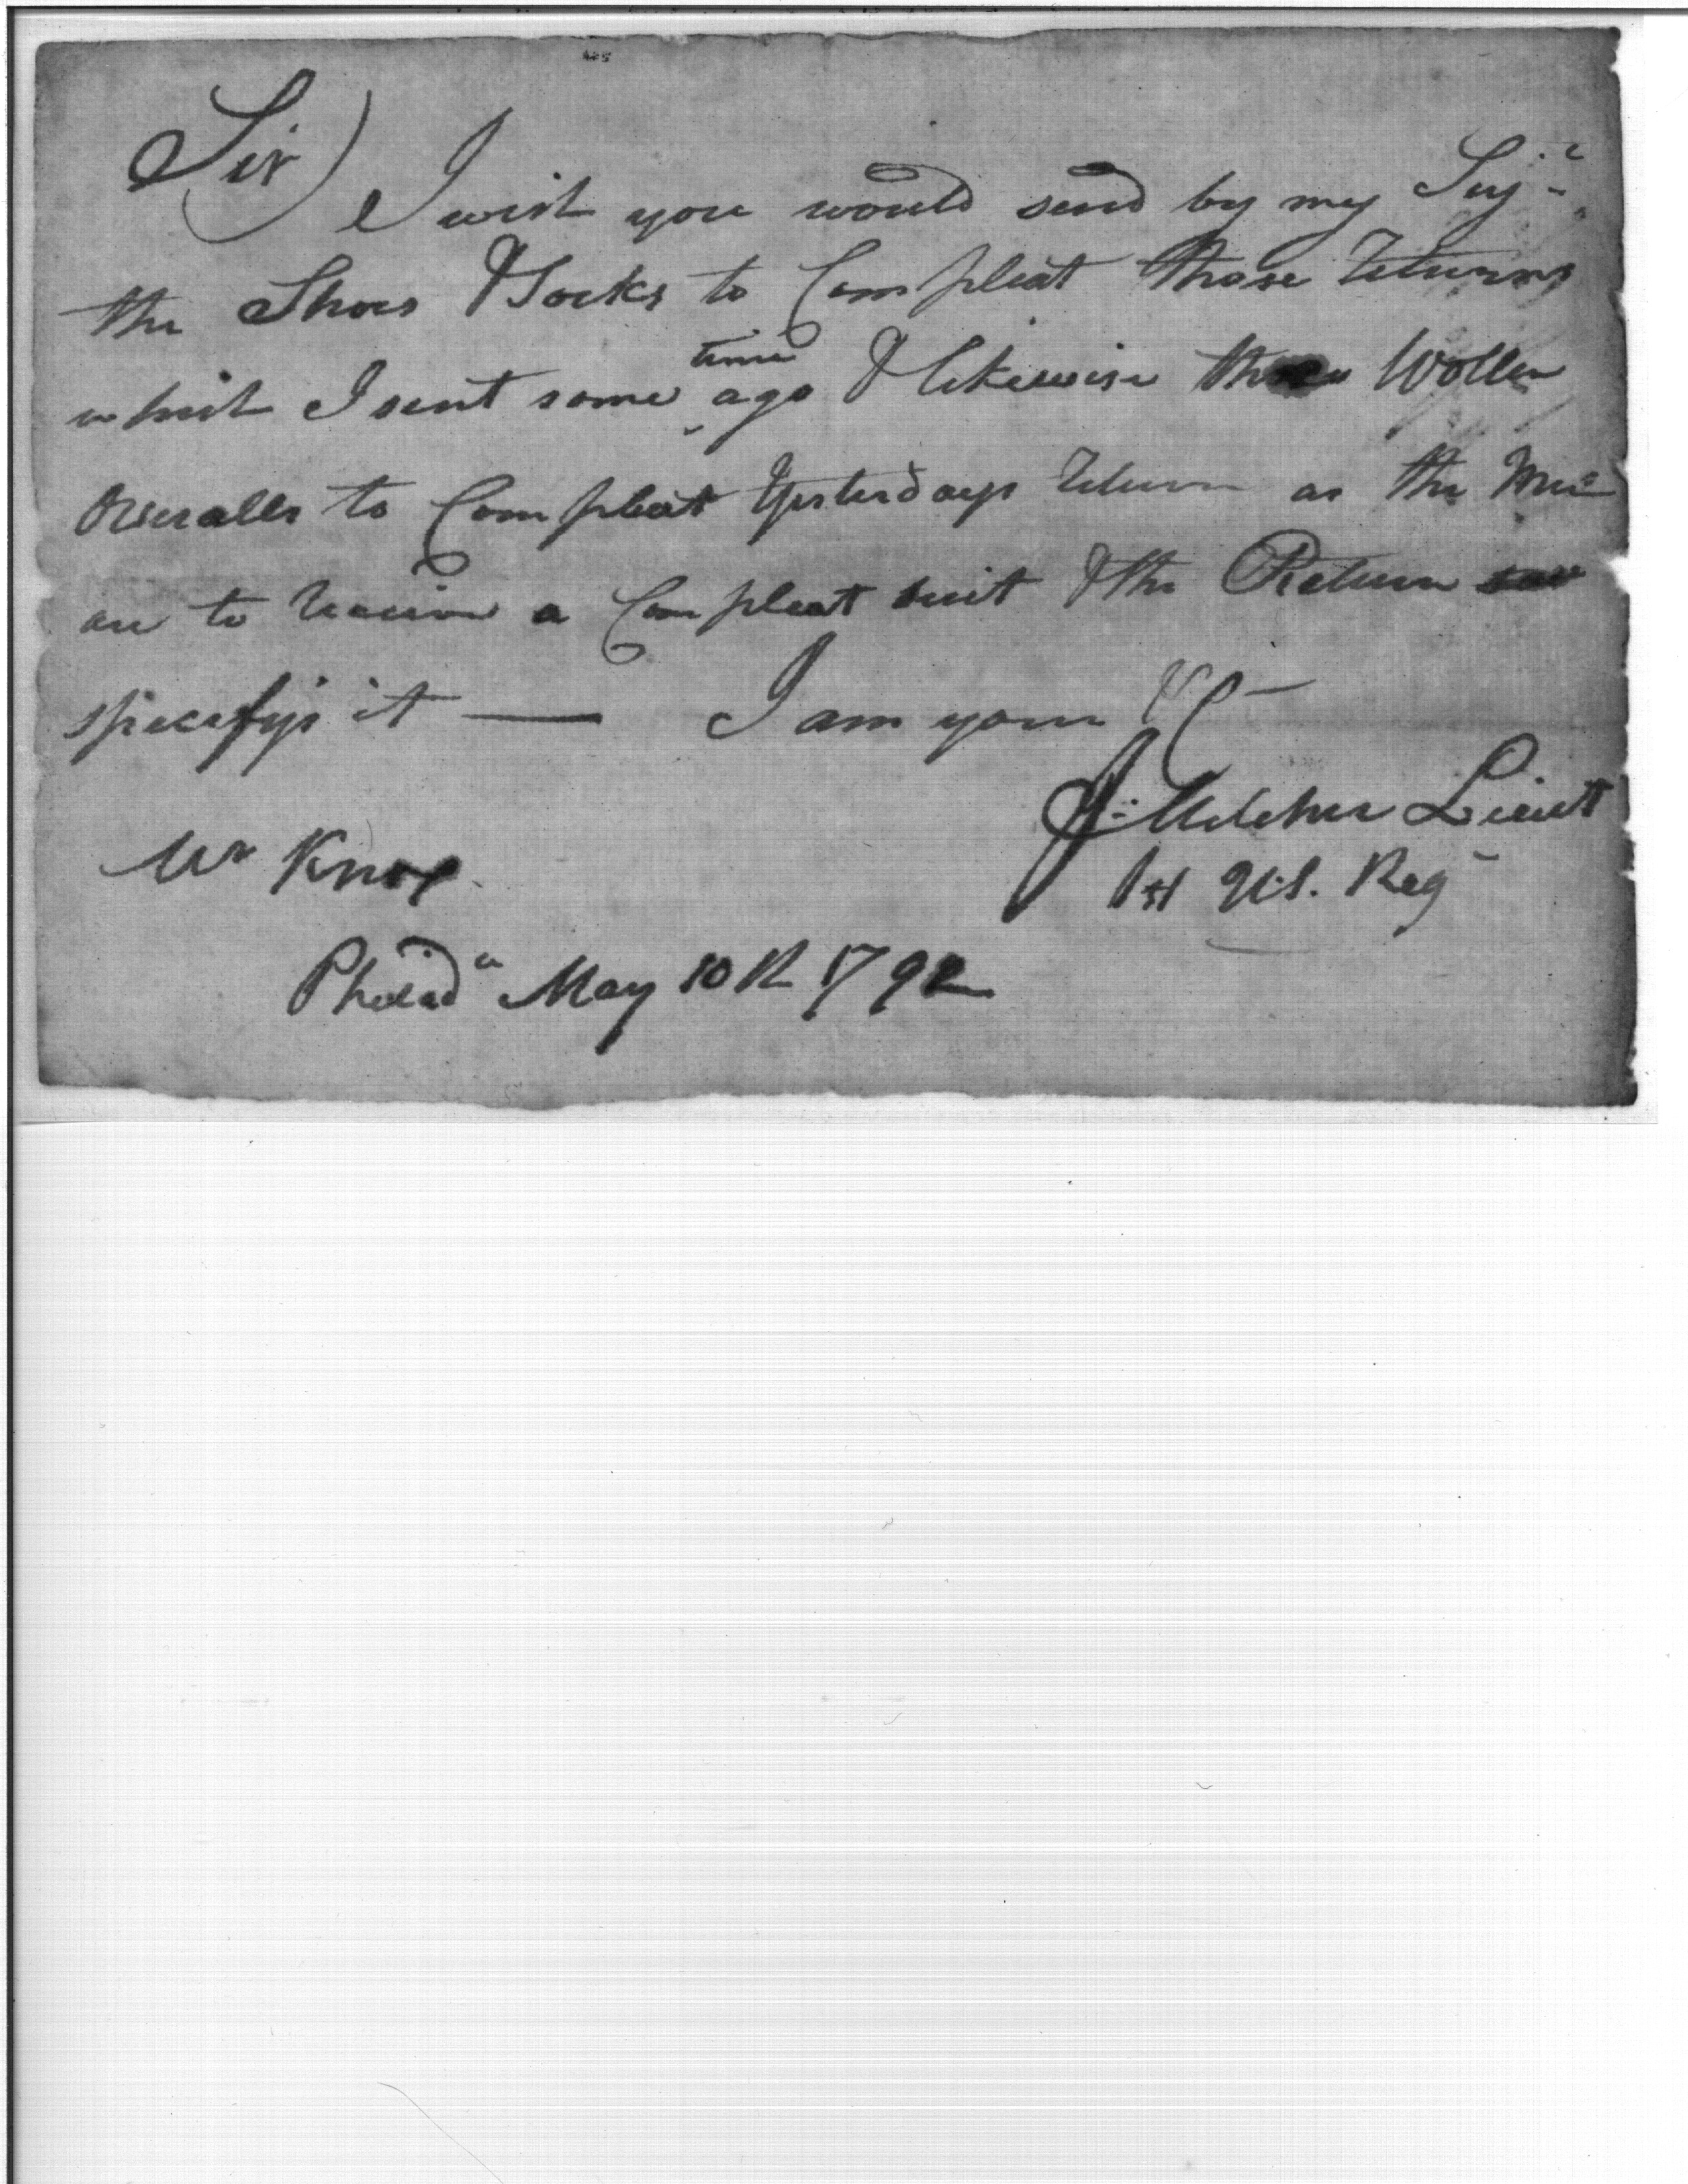 Sir)
I wish you would send by my Serj.t
the Shoes & Socks to Compleat those Returns
which I sent some time ago & likewise Wollen
Overalls to Compleat Yesterdays Return as the Men
are to receive a Compleat suit & the Return
specefys it — I am yours &c —
J: Melcher Lieut
Mr Knox
1st U.S. Reg
Philad.a May 10th 1792